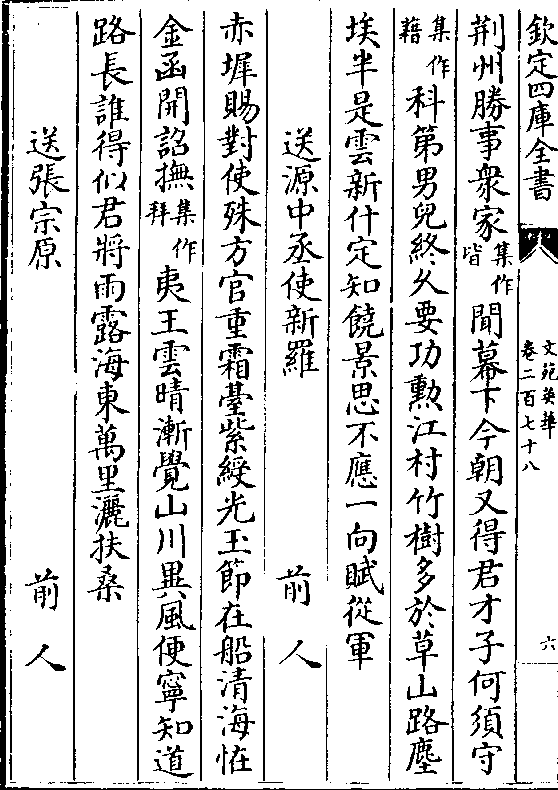 欽定四庫全書
文苑英華
卷二百七十八
六
荆州勝事衆家集作皆聞幕下今朝又得君才子何須守
集作藉科第男兒終久要功勲江村竹樹多於草山路塵
埃半是雲新什定知饒景思不應一向賦從軍
送源中丞使新羅 前人
赤墀賜對使殊方官重霜臺紫綬光玉節在船清海恠
金函開詔撫集作拜夷王雲晴漸覺山川異風便寧知道
路長誰得似君將雨露海東萬里灑扶桑
送張宗原 前人